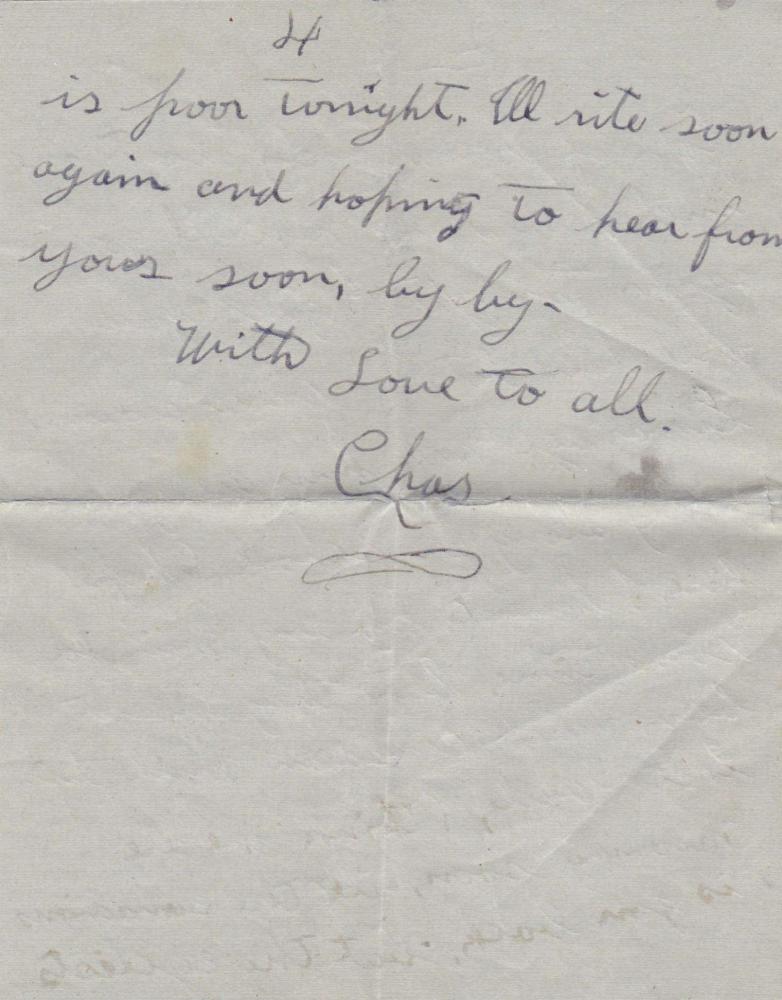 4
is poor tonight. Ill rite soon
again and hoping to hear from
yous soon, by by-
With Love to all.
Chas